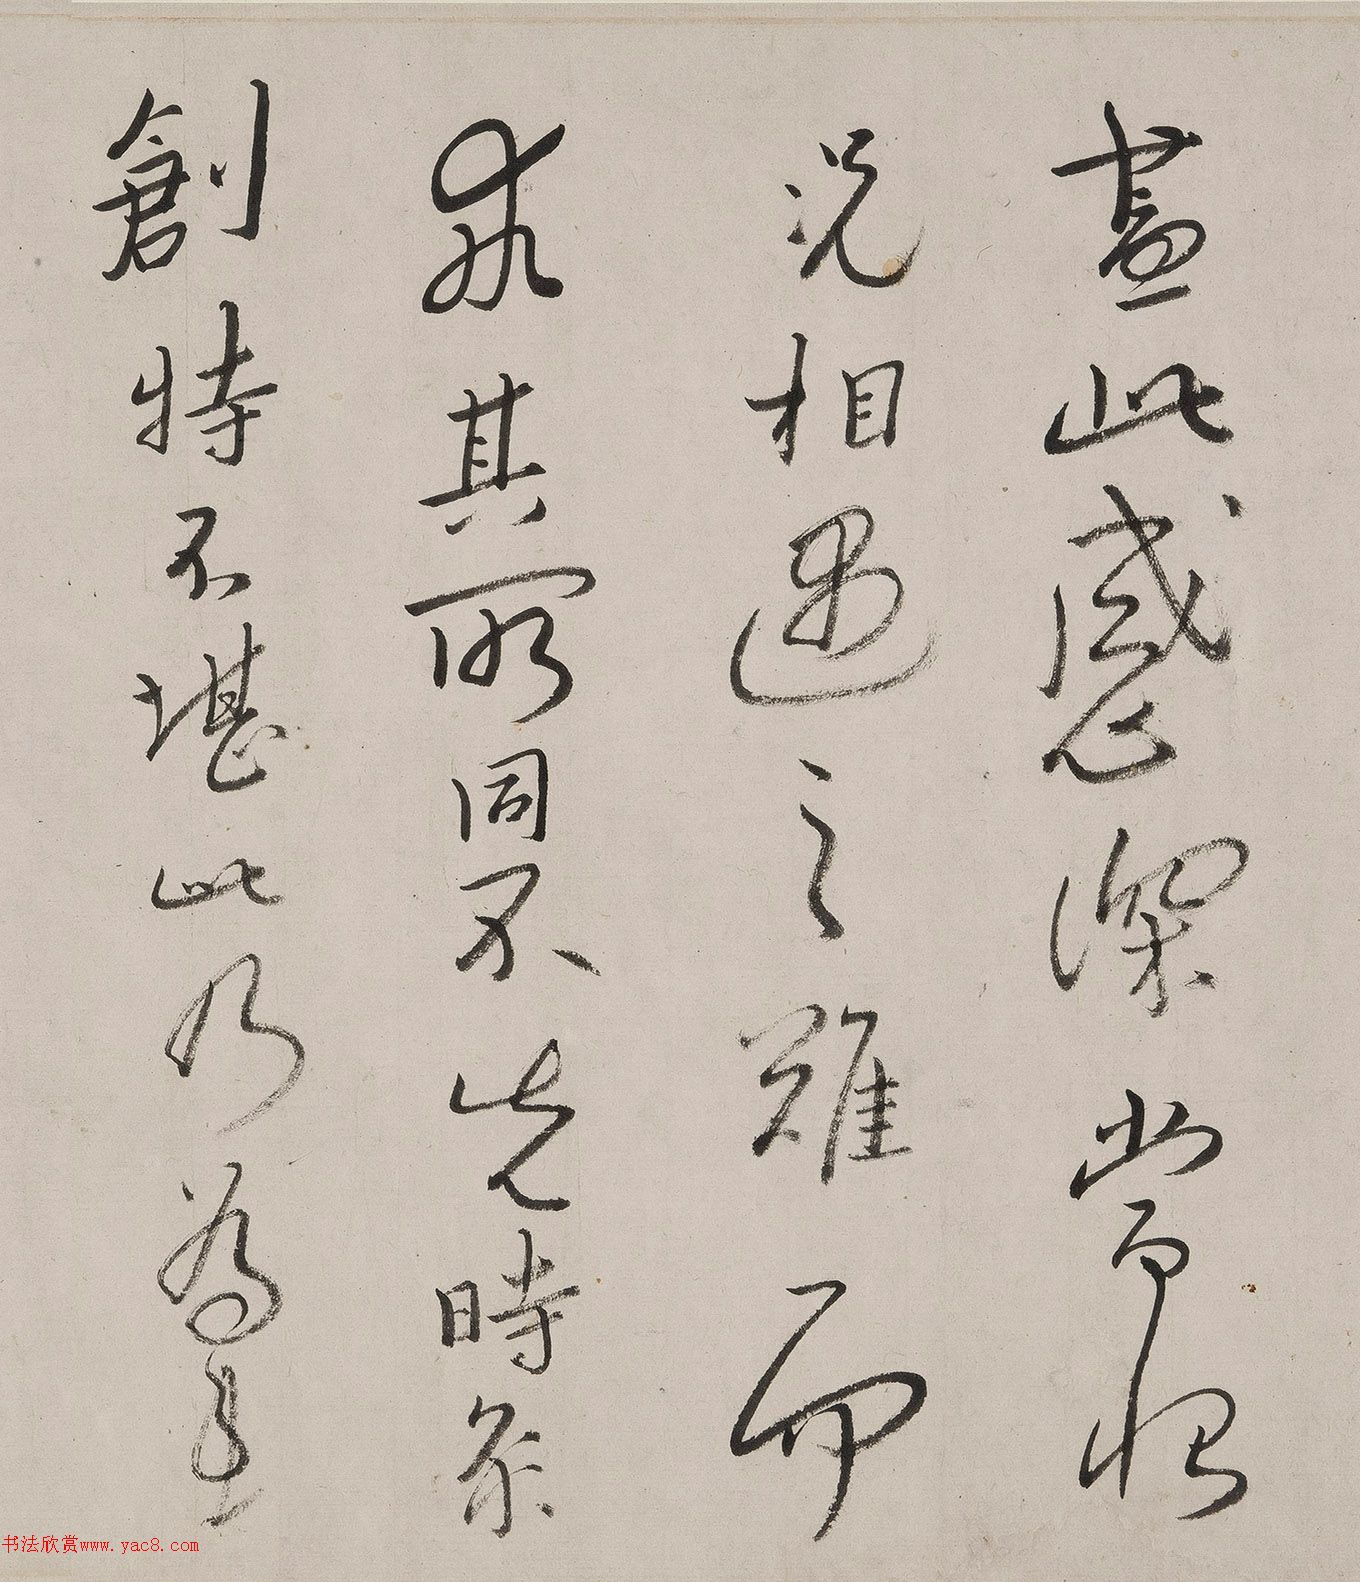 盡此感深常恨
況相遇之難而
求其所同不先時矣
創特不堪此乃為重
书法欣赏www.yac8.com